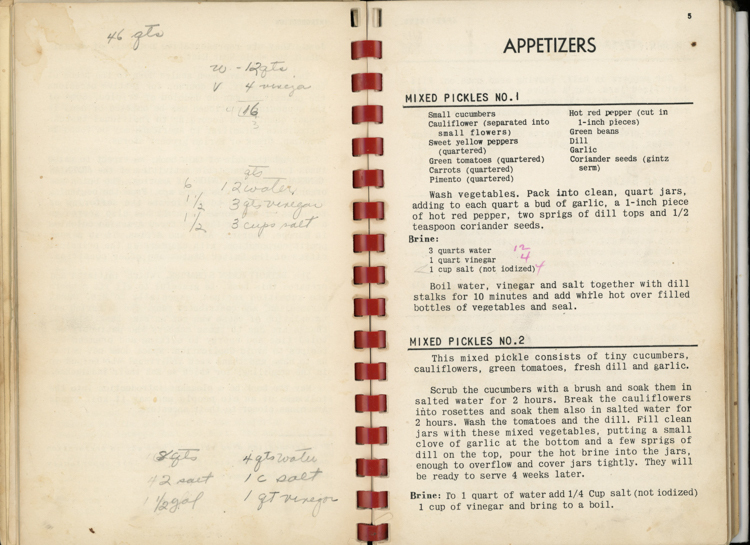 46 qts
w - 12 qts
v 4 vinegar
16
3
qts
6 12 water
1 1/2 3 qts vinegar
1 1/2 3 cups salt
8 qts 4 qts water
2 salt 1 c salt
1/2 gal 1 qt vinegar
5
APPETIZERS
MIXED PICKLES NO.1
Small cucumbers
Cauliflower (separated into
small flowers)
Sweet yellow peppers
(quartered)
Green tomatoes (quartered)
Carrots (quartered)
Pimento (quartered)
Hot red pepper (cut in
1-inch pieces)
Green beans
Dill
Garlic
Coriander seeds (gintz
serm)
Wash vegetables. Pack into clean, quart jars,
adding to each quart a bud of garlic, a 1-inch piece
of hot red pepper, two sprigs of dill tops and 1/2
teaspoon coriander seeds.
Brine:
3 quarts water 12
1 quart vinegar 4
1 cup salt (not iodized) 4
Boil water, vinegar and salt together with dill
stalks for 10 minutes and add while hot over filled
bottles of vegetables and seal.
MIXED PICKLES NO.2
This mixed pickle consists of tiny cucumbers,
cauliflowers, green tomatoes, fresh dill and garlic.
Scrub the cucumbers with a brush and soak them in
salted water for 2 hours. Break the cauliflowers
into rosettes and soak them also in salted water for
2 hours. Wash the tomatoes and the dill. Fill clean
jars with these mixed vegetables, putting a small
clove of garlic at the bottom and a few sprigs of
dill on the top, pour the hot brine into the jars,
enough to overflow and cover jars tightly. They will
be ready to serve 4 weeks later.
Brine: To 1 quart of water add 1/4 Cup salt (not iodized)
1 cup of vinegar and bring to a boil.